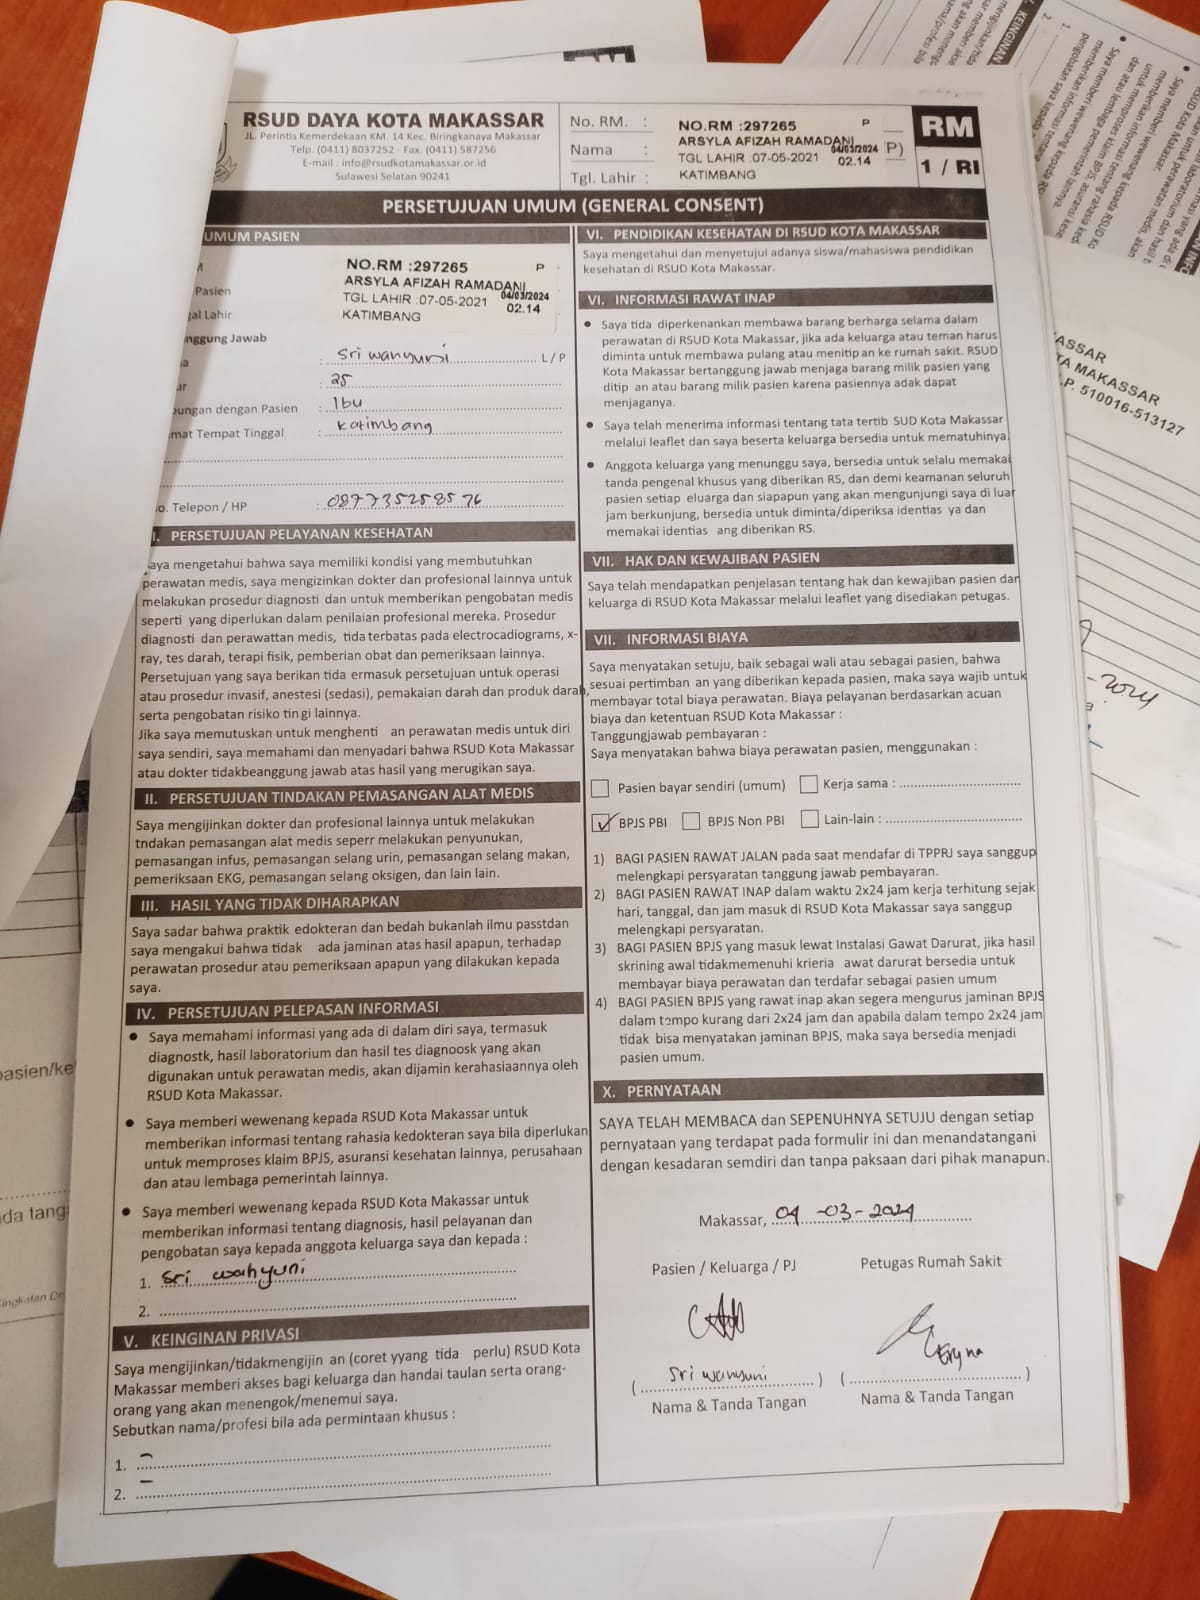 RSUD DAYA KOTA MAKASSAR
JL. Perintis Kemerdekaan KM. 14 Kec. Biringkanaya Makassar
Telp. (0411) 8037252 - Fax. (0411) 587256
E-mail : info@rsudkotamakassar.or.id
Sulawesi Selatan 90241
No. RM. :
Nama :
Tgl. Lahir :
NO.RM :297265 P
ARSYLA AFIZAH RAMADANI
04/03/2024 P)
TGL LAHIR :07-05-2021 02.14
KATIMBANG
RM
1 / RI
PERSETUJUAN UMUM (GENERAL CONSENT)
UMUM PASIEN
NO.RM :297265 P
Pasien
ARSYLA AFIZAH RAMADANI
TGL LAHIR :07-05-2021 04/03/2024
02.14
al Lahir
KATIMBANG
nggung Jawab
a : Sri wahyuni L / P
ur : 25
bungan dengan Pasien : Ibu
mat Tempat Tinggal : Katimbang
o. Telepon / HP : 087735258576
I. PERSETUJUAN PELAYANAN KESEHATAN
aya mengetahui bahwa saya memiliki kondisi yang membutuhkan
perawatan medis, saya mengizinkan dokter dan profesional lainnya untuk
melakukan prosedur diagnosti dan untuk memberikan pengobatan medis
seperti yang diperlukan dalam penilaian profesional mereka. Prosedur
diagnosti dan perawattan medis, tida terbatas pada electrocadiograms, x-
ray, tes darah, terapi fisik, pemberian obat dan pemeriksaan lainnya.
Persetujuan yang saya berikan tida ermasuk persetujuan untuk operasi
atau prosedur invasif, anestesi (sedasi), pemakaian darah dan produk darah,
serta pengobatan risiko tin gi lainnya.
Jika saya memutuskan untuk menghenti an perawatan medis untuk diri
saya sendiri, saya memahami dan menyadari bahwa RSUD Kota Makassar
atau dokter tidakbeanggung jawab atas hasil yang merugikan saya.
II. PERSETUJUAN TINDAKAN PEMASANGAN ALAT MEDIS
Saya mengijinkan dokter dan profesional lainnya untuk melakukan
tndakan pemasangan alat medis seperr melakukan penyunukan,
pemasangan infus, pemasangan selang urin, pemasangan selang makan,
pemeriksaan EKG, pemasangan selang oksigen, dan lain lain.
III. HASIL YANG TIDAK DIHARAPKAN
Saya sadar bahwa praktik edokteran dan bedah bukanlah ilmu passtdan
saya mengakui bahwa tidak ada jaminan atas hasil apapun, terhadap
perawatan prosedur atau pemeriksaan apapun yang dilakukan kepada
saya.
IV. PERSETUJUAN PELEPASAN INFORMASI
● Saya memahami informasi yang ada di dalam diri saya, termasuk
diagnostk, hasil laboratorium dan hasil tes diagnoosk yang akan
digunakan untuk perawatan medis, akan dijamin kerahasiaannya oleh
RSUD Kota Makassar.
● Saya memberi wewenang kepada RSUD Kota Makassar untuk
memberikan informasi tentang rahasia kedokteran saya bila diperlukan
untuk memproses klaim BPJS, asuransi kesehatan lainnya, perusahaan
dan atau lembaga pemerintah lainnya.
● Saya memberi wewenang kepada RSUD Kota Makassar untuk
memberikan informasi tentang diagnosis, hasil pelayanan dan
pengobatan saya kepada anggota keluarga saya dan kepada :
1. Sri wahyuni
2.
V. KEINGINAN PRIVASI
Saya mengijinkan/tidakmengijin an (coret yyang tida perlu) RSUD Kota
Makassar memberi akses bagi keluarga dan handai taulan serta orang-
orang yang akan menengok/menemui saya.
Sebutkan nama/profesi bila ada permintaan khusus :
1. -
2. -
VI. PENDIDIKAN KESEHATAN DI RSUD KOTA MAKASSAR
Saya mengetahui dan menyetujui adanya siswa/mahasiswa pendidikan
kesehatan di RSUD Kota Makassar.
VI. INFORMASI RAWAT INAP
● Saya tida diperkenankan membawa barang berharga selama dalam
perawatan di RSUD Kota Makassar, jika ada keluarga atau teman harus
diminta untuk membawa pulang atau menitip an ke rumah sakit. RSUD
Kota Makassar bertanggung jawab menjaga barang milik pasien yang
ditip an atau barang milik pasien karena pasiennya adak dapat
menjaganya.
● Saya telah menerima informasi tentang tata tertib SUD Kota Makassar
melalui leaflet dan saya beserta keluarga bersedia untuk mematuhinya.
● Anggota keluarga yang menunggu saya, bersedia untuk selalu memakai
tanda pengenal khusus yang diberikan RS, dan demi keamanan seluruh
pasien setiap eluarga dan siapapun yang akan mengunjungi saya di luar
jam berkunjung, bersedia untuk diminta/diperiksa identias ya dan
memakai identias ang diberikan RS.
VII. HAK DAN KEWAJIBAN PASIEN
Saya telah mendapatkan penjelasan tentang hak dan kewajiban pasien dan
keluarga di RSUD Kota Makassar melalui leaflet yang disediakan petugas.
VII. INFORMASI BIAYA
Saya menyatakan setuju, baik sebagai wali atau sebagai pasien, bahwa
sesuai pertimban an yang diberikan kepada pasien, maka saya wajib untuk
membayar total biaya perawatan. Biaya pelayanan berdasarkan acuan
biaya dan ketentuan RSUD Kota Makassar :
Tanggungjawab pembayaran :
Saya menyatakan bahwa biaya perawatan pasien, menggunakan :
Pasien bayar sendiri (umum) Kerja sama :
✓ BPJS PBI BPJS Non PBI Lain-lain :
1) BAGI PASIEN RAWAT JALAN pada saat mendafar di TPPRJ saya sanggup
melengkapi persyaratan tanggung jawab pembayaran.
2) BAGI PASIEN RAWAT INAP dalam waktu 2x24 jam kerja terhitung sejak
hari, tanggal, dan jam masuk di RSUD Kota Makassar saya sanggup
melengkapi persyaratan.
3) BAGI PASIEN BPJS yang masuk lewat Instalasi Gawat Darurat, jika hasil
skrining awal tidakmemenuhi krieria awat darurat bersedia untuk
membayar biaya perawatan dan terdafar sebagai pasien umum
4) BAGI PASIEN BPJS yang rawat inap akan segera mengurus jaminan BPJS
dalam tempo kurang dari 2x24 jam dan apabila dalam tempo 2x24 jam
tidak bisa menyatakan jaminan BPJS, maka saya bersedia menjadi
pasien umum.
X. PERNYATAAN
SAYA TELAH MEMBACA dan SEPENUHNYA SETUJU dengan setiap
pernyataan yang terdapat pada formulir ini dan menandatangani
dengan kesadaran semdiri dan tanpa paksaan dari pihak manapun.
Makassar, 04-03-2024
Pasien / Keluarga / PJ Petugas Rumah Sakit
(Sri wahyuni) ( )
Nama & Tanda Tangan Nama & Tanda Tangan
ASSAR
TA MAKASSAR
P. 510016-513127
-2024
pasien/ke
da tang